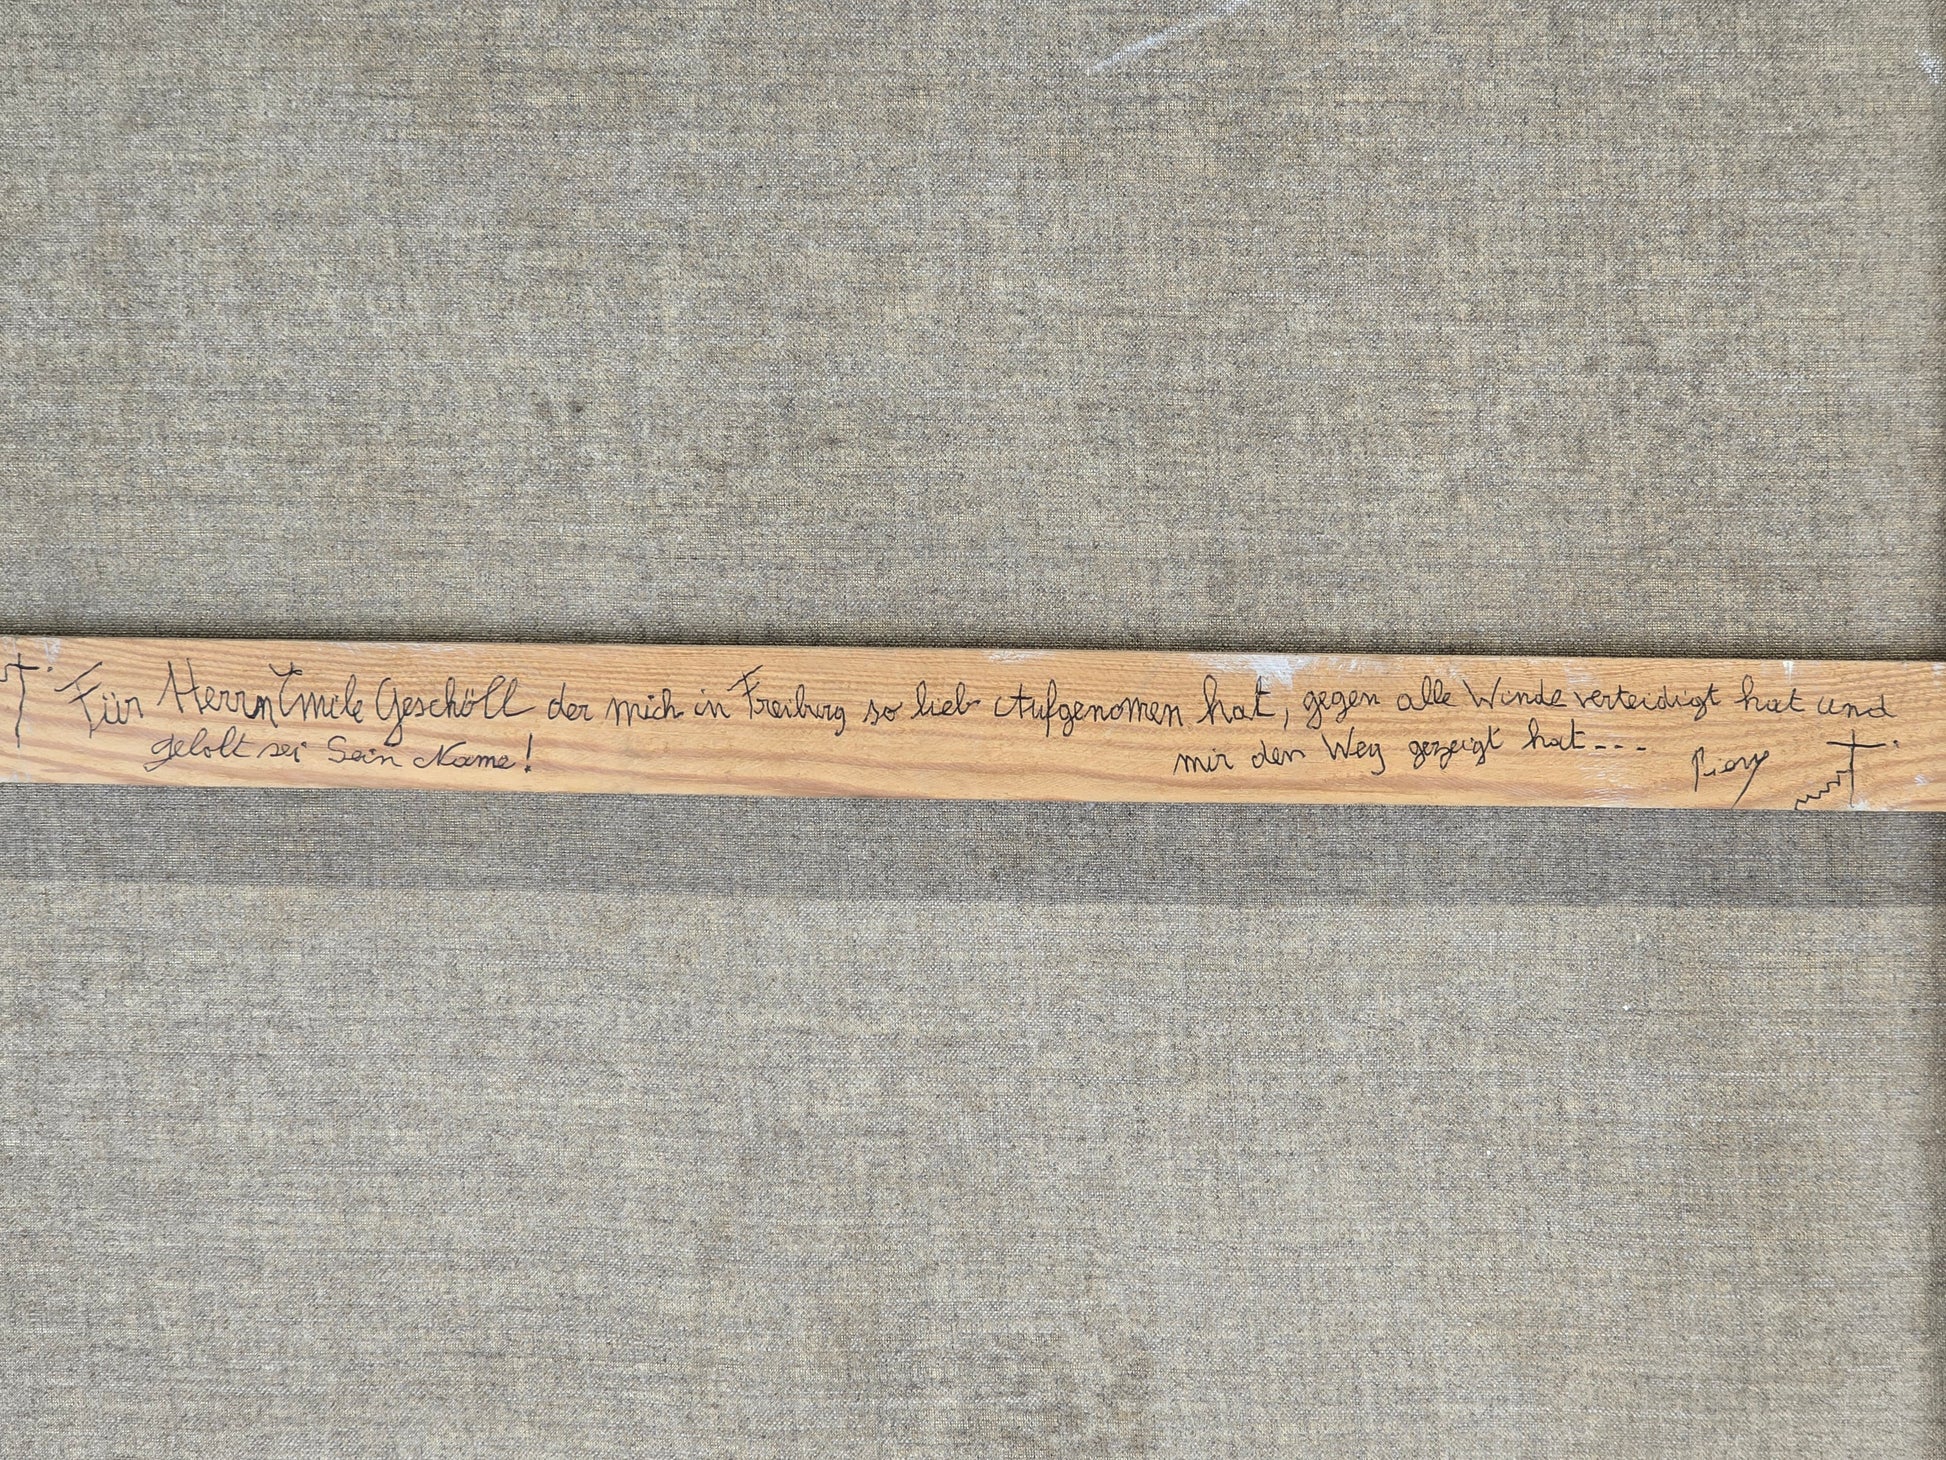 Für Herrn Emile Geschöll der mich in Freiburg so lieb Aufgenomen hat, gegen alle Winde verteidigt hat und
gelobt sei Sein Name!
mir den Weg gezeigt hat---